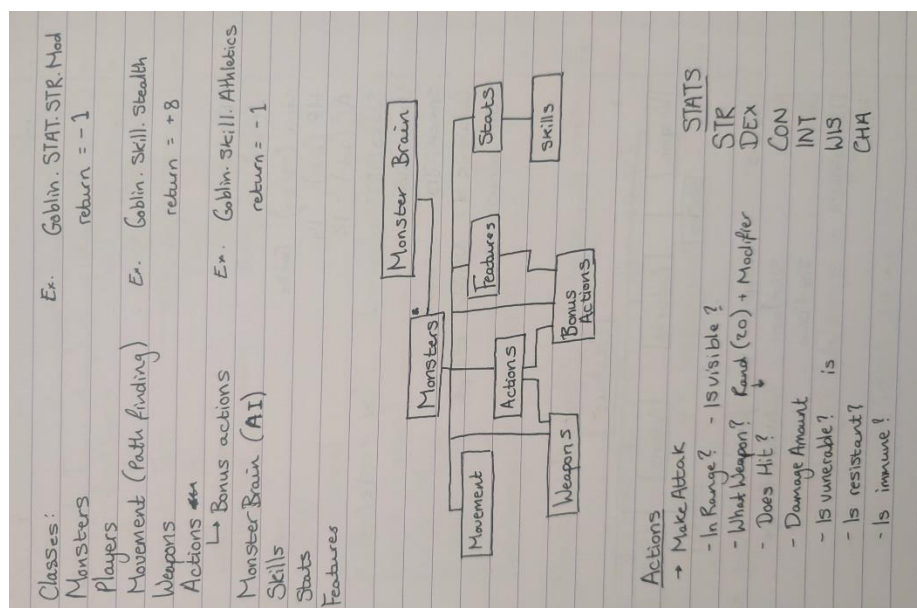 Classes:
Monsters
Players
Movement (Path finding)
Weapons
Actions
↳ Bonus actions
Monster Brain (AI)
Skills
Stats
Features
Ex. Goblin.STAT.STR.Mod
return = -1
Ex. Goblin.Skill.Stealth
return = +8
Ex. Goblin.Skill.Athletics
return = -1
Monster Brain
Monsters
Movement
Actions
Features
Stats
Weapons
Bonus
Actions
Skills
Actions
→ Make Attak
- In Range? - Is visible?
- What Weapon? Rand (20) + Modifier
- Does Hit?
- Damage Amount
- Is vunerable? is
- Is resistant?
- Is immune?
STATS
STR
DEX
CON
INT
WIS
CHA